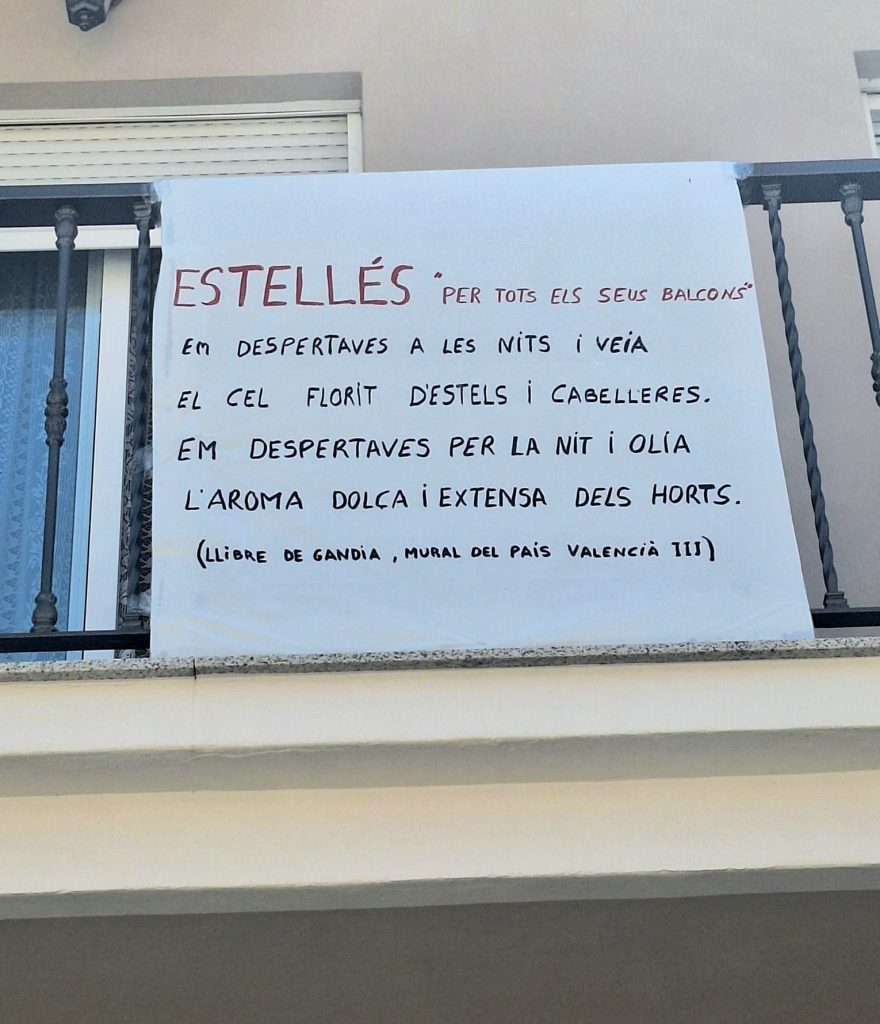 ESTELLÉS "PER TOTS ELS SEUS BALCONS"
EM DESPERTAVES A LES NITS I VEIA
EL CEL FLORIT D'ESTELS I CABELLERES.
EM DESPERTAVES PER LA NIT I OLIA
L'AROMA DOLÇA I EXTENSA DELS HORTS.
(LLIBRE DE GANDIA, MURAL DEL PAÍS VALENCIÀ III)